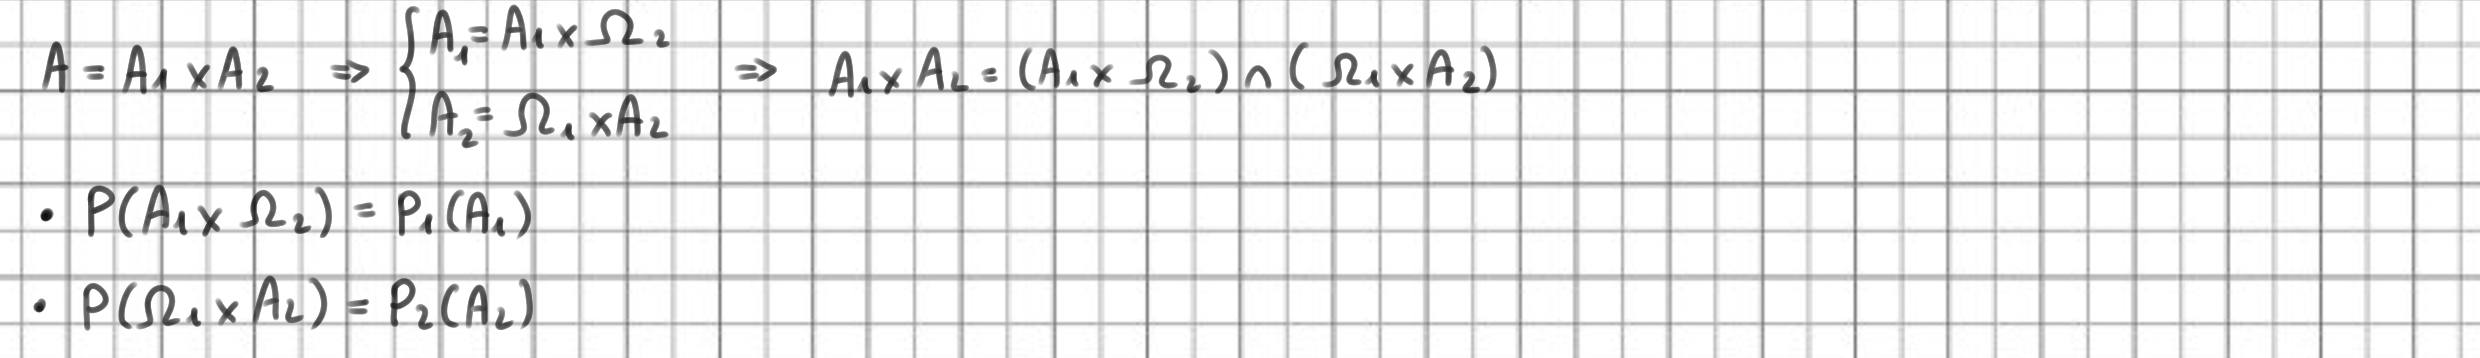 A = A₁ × A₂ ⇒ { A₁ = A₁ × Ω₂
A₂ = Ω₁ × A₂ ⇒ A₁ × A₂ = (A₁ × Ω₂) ∩ (Ω₁ × A₂)
• P(A₁ × Ω₂) = P₁(A₁)
• P(Ω₁ × A₂) = P₂(A₂)